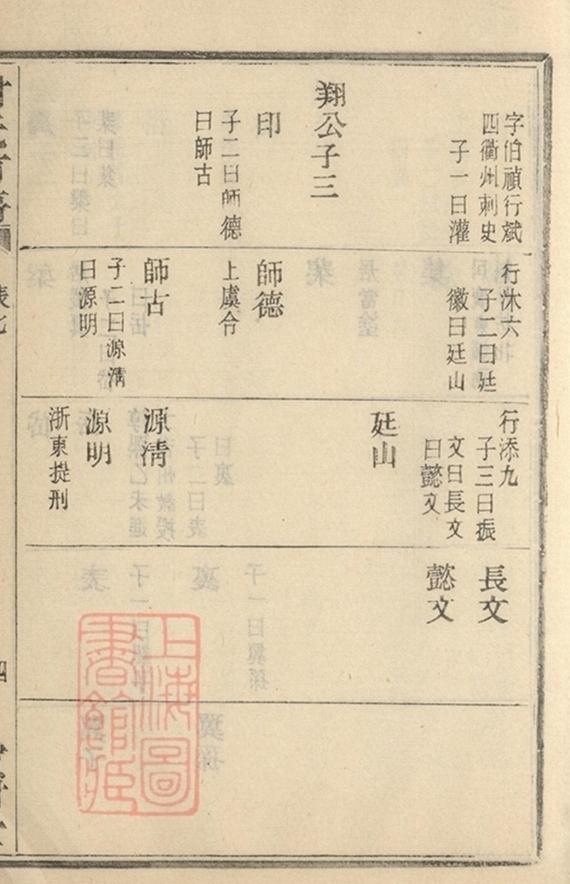 字伯禎行斌
四衢州刺史
子一曰灌
翔公子三
印
子二曰師德
曰師古
行沐六
子二曰廷
徽曰廷山
師德
上虞令
師古
子二曰源淸
曰源明
行添九
子三曰振
文曰長文
曰懿文
廷山
源淸
源明
浙東提刑
長文
懿文
上海圖
書館藏